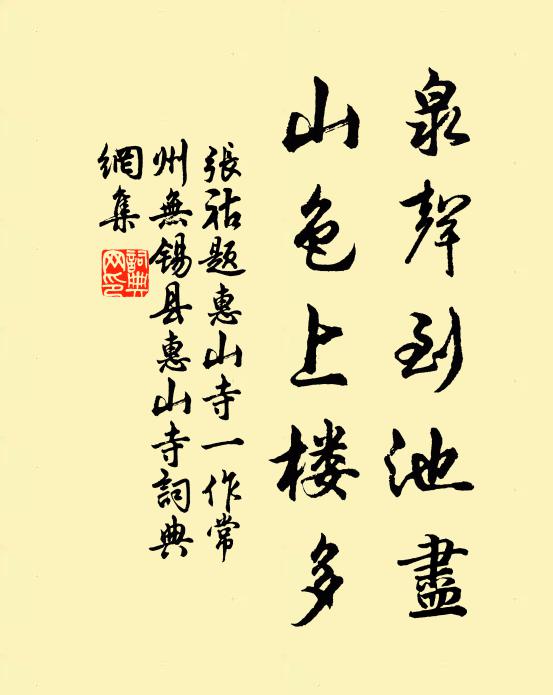 泉聲到池盡
山色上楼多
張祜題惠山寺一作常
州無锡县惠山寺詞典
網集
詞典网印